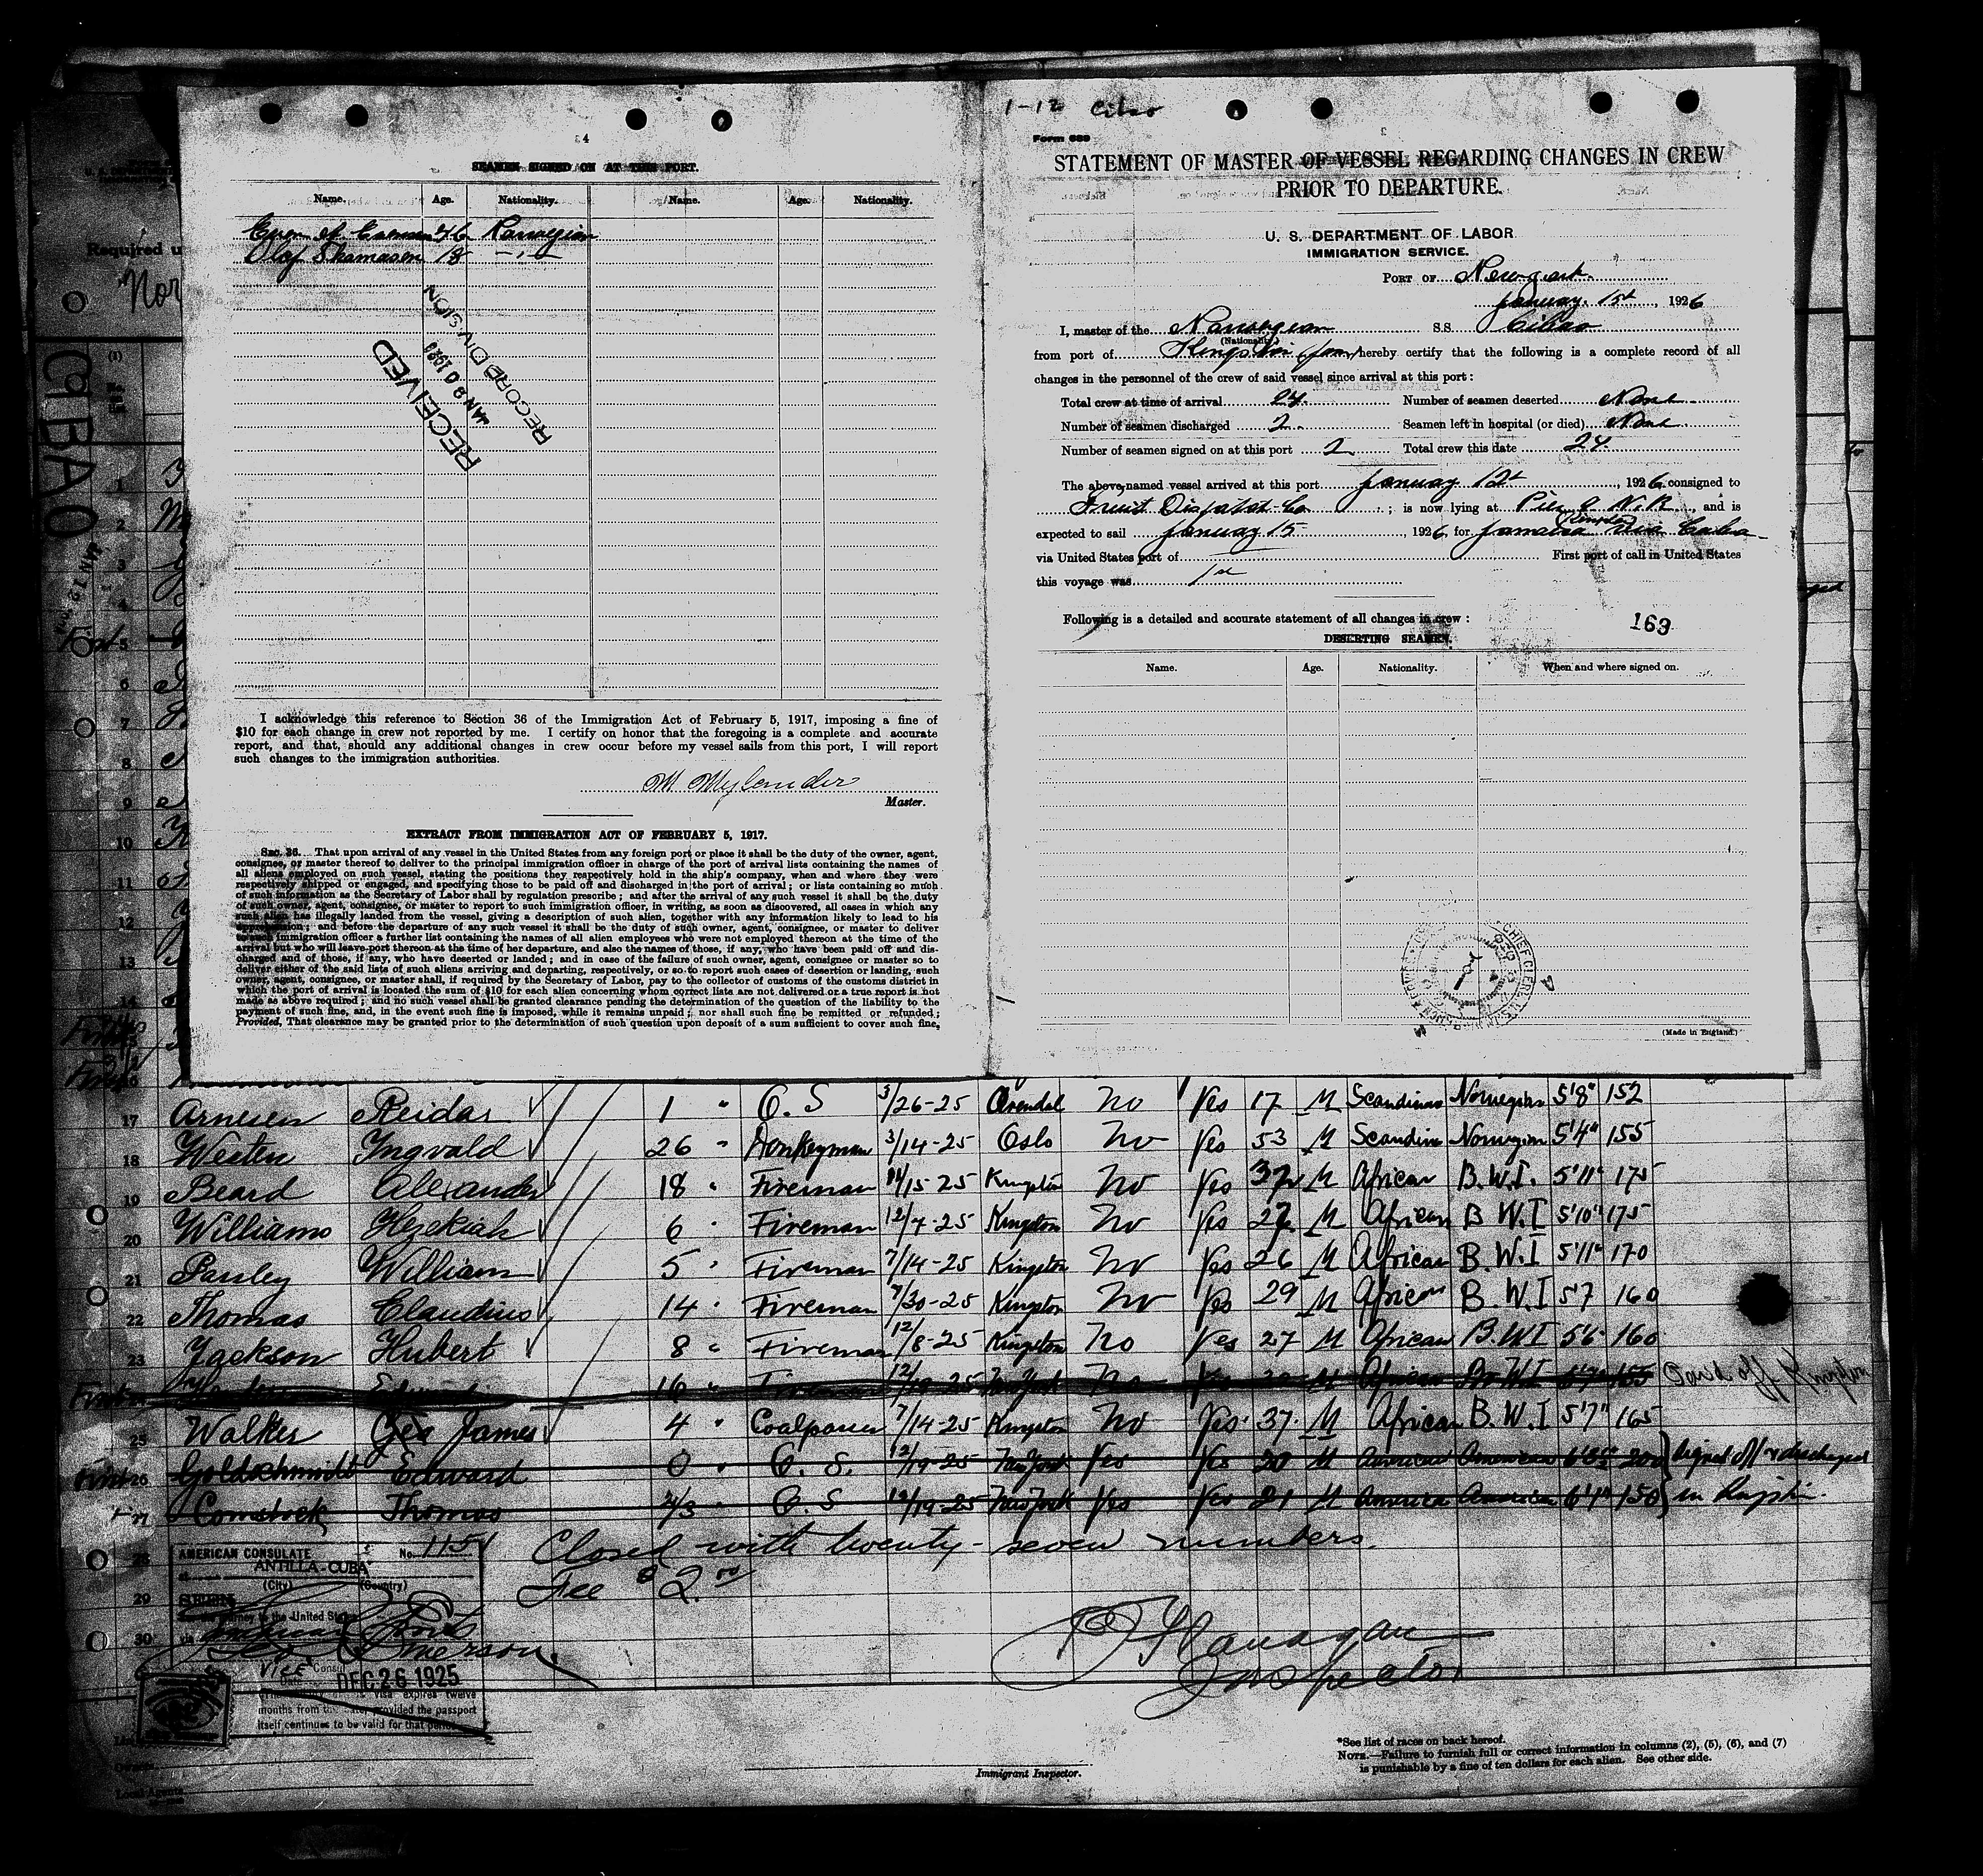 4
SEAMEN SIGNED ON AT THIS PORT.
Name. Age. Nationality. Name. Age. Nationality.
46 Norwegian
Olaf 18 -"-
RECEIVED
JAN 20 1926
RECORD DIVISION
I acknowledge this reference to Section 36 of the Immigration Act of February 5, 1917, imposing a fine of
$10 for each change in crew not reported by me. I certify on honor that the foregoing is a complete and accurate
report, and that, should any additional changes in crew occur before my vessel sails from this port, I will report
such changes to the immigration authorities.
M Mylander
Master.
EXTRACT FROM IMMIGRATION ACT OF FEBRUARY 5, 1917.
SEC. 36. That upon arrival of any vessel in the United States from any foreign port or place it shall be the duty of the owner, agent,
consignee, or master thereof to deliver to the principal immigration officer in charge of the port of arrival lists containing the names of
all aliens employed on such vessel, stating the positions they respectively hold in the ship's company, when and where they were
respectively shipped or engaged, and specifying those to be paid off and discharged in the port of arrival; or lists containing so much
of such information as the Secretary of Labor shall by regulation prescribe; and after the arrival of any such vessel it shall be the duty
of such owner, agent, consignee, or master to report to such immigration officer, in writing, as soon as discovered, all cases in which any
such alien has illegally landed from the vessel, giving a description of such alien, together with any information likely to lead to his
apprehension; and before the departure of any such vessel it shall be the duty of such owner, agent, consignee, or master to deliver
to such immigration officer a further list containing the names of all alien employees who were not employed thereon at the time of the
arrival but who will leave port thereon at the time of her departure, and also the names of those, if any, who have been paid off and dis-
charged and of those, if any, who have deserted or landed; and in case of the failure of such owner, agent, consignee or master so to
deliver either of the said lists of such aliens arriving and departing, respectively, or so to report such cases of desertion or landing, such
owner, agent, consignee, or master shall, if required by the Secretary of Labor, pay to the collector of customs of the customs district in
which the port of arrival is located the sum of $10 for each alien concerning whom correct lists are not delivered or a true report is not
made as above required; and no such vessel shall be granted clearance pending the determination of the question of the liability to the
payment of such fine, and, in the event such fine is imposed, while it remains unpaid; nor shall such fine be remitted or refunded;
Provided, That clearance may be granted prior to the determination of such question upon deposit of a sum sufficient to cover such fine,
1-12 Cibao
Form 689
STATEMENT OF MASTER OF VESSEL REGARDING CHANGES IN CREW
PRIOR TO DEPARTURE.
U. S. DEPARTMENT OF LABOR
IMMIGRATION SERVICE.
PORT OF New york.
January. 15t, 1926
I, master of the Norwegian SS. Cibao
(Nationality)
from port of Kingston (Jam) hereby certify that the following is a complete record of all
changes in the personnel of the crew of said vessel since arrival at this port:
Total crew at time of arrival 24. Number of seamen deserted None
Number of seamen discharged 2. Seamen left in hospital (or died) None
Number of seamen signed on at this port 2 Total crew this date 24.
The above-named vessel arrived at this port January 12t, 1926, consigned to
Fruit Dispatch Co; is now lying at Pier 9 N.R., and is
expected to sail January 15, 1926, for Jamaica (Kingston) via Cuba
via United States port of First port of call in United States
this voyage was 1st
Following is a detailed and accurate statement of all changes in crew:
163
DESERTING SEAMEN.
Name. Age. Nationality. When and where signed on.
(Made in England.)
Required u
Nor
CIBAO
JAN 12
17 Arnesen Reidar 1 " O. S 3/26-25 Arendal No Yes 17 M Scandinav Norwegian 5'8" 152
18 Westen Ingvald 26 " Donkeyman 3/14-25 Oslo No Yes 53 M Scandin Norwegian 5'4" 155
19 Beard Alexander 18 " Fireman 11/15-25 Kingston No Yes 37 M African B.W.I. 5'11" 175
20 Williams Hezekiah 6 " Fireman 12/7-25 Kingston No Yes 27 M African B W.I 5'10" 175
21 Pasley William 5 " Fireman 7/14-25 Kingston No Yes 26 M African B.W.I 5'11" 170
22 Thomas Claudius 14 " Fireman 7/30-25 Kingston No Yes 29 M African B.W.I 5'7 160
23 Jackson Hubert 8 " Fireman 12/8-25 Kingston No Yes 27 M African B.W.I 5'6" 160
Edward 16 " Fireman 12/19-25 New York No Yes M African B.W.I 5'7" 155 Paid off Kingston
25 Walker Geo James 4 " Coalpasser 7/14-25 Kingston No Yes 37 M African B.W.I 5'7" 165
26 Goldschmidt Edward 0 " O. S. 12/19-25 New York Yes Yes 20 M American American 200 Signed off & discharged
27 Comstock Thomas 4/3 " O. S 12/19-25 New York Yes Yes 21 M America American 6'1" 150 in Kingston.
28 Closed with twenty-seven numbers.
29 Fee $2.00
30
AMERICAN CONSULATE No. 1151
at ANTILLA-CUBA
(City) (Country)
SEEN
For the journey to the United States
Vice Consul
Date DEC 26 1925
visa expires twelve
months from this date, provided the passport
itself continues to be valid for that period.
Flanagan
Inspector
Immigrant Inspector.
*See list of races on back hereof.
NOTE.—Failure to furnish full or correct information in columns (2), (5), (6), and (7)
is punishable by a fine of ten dollars for each alien. See other side.